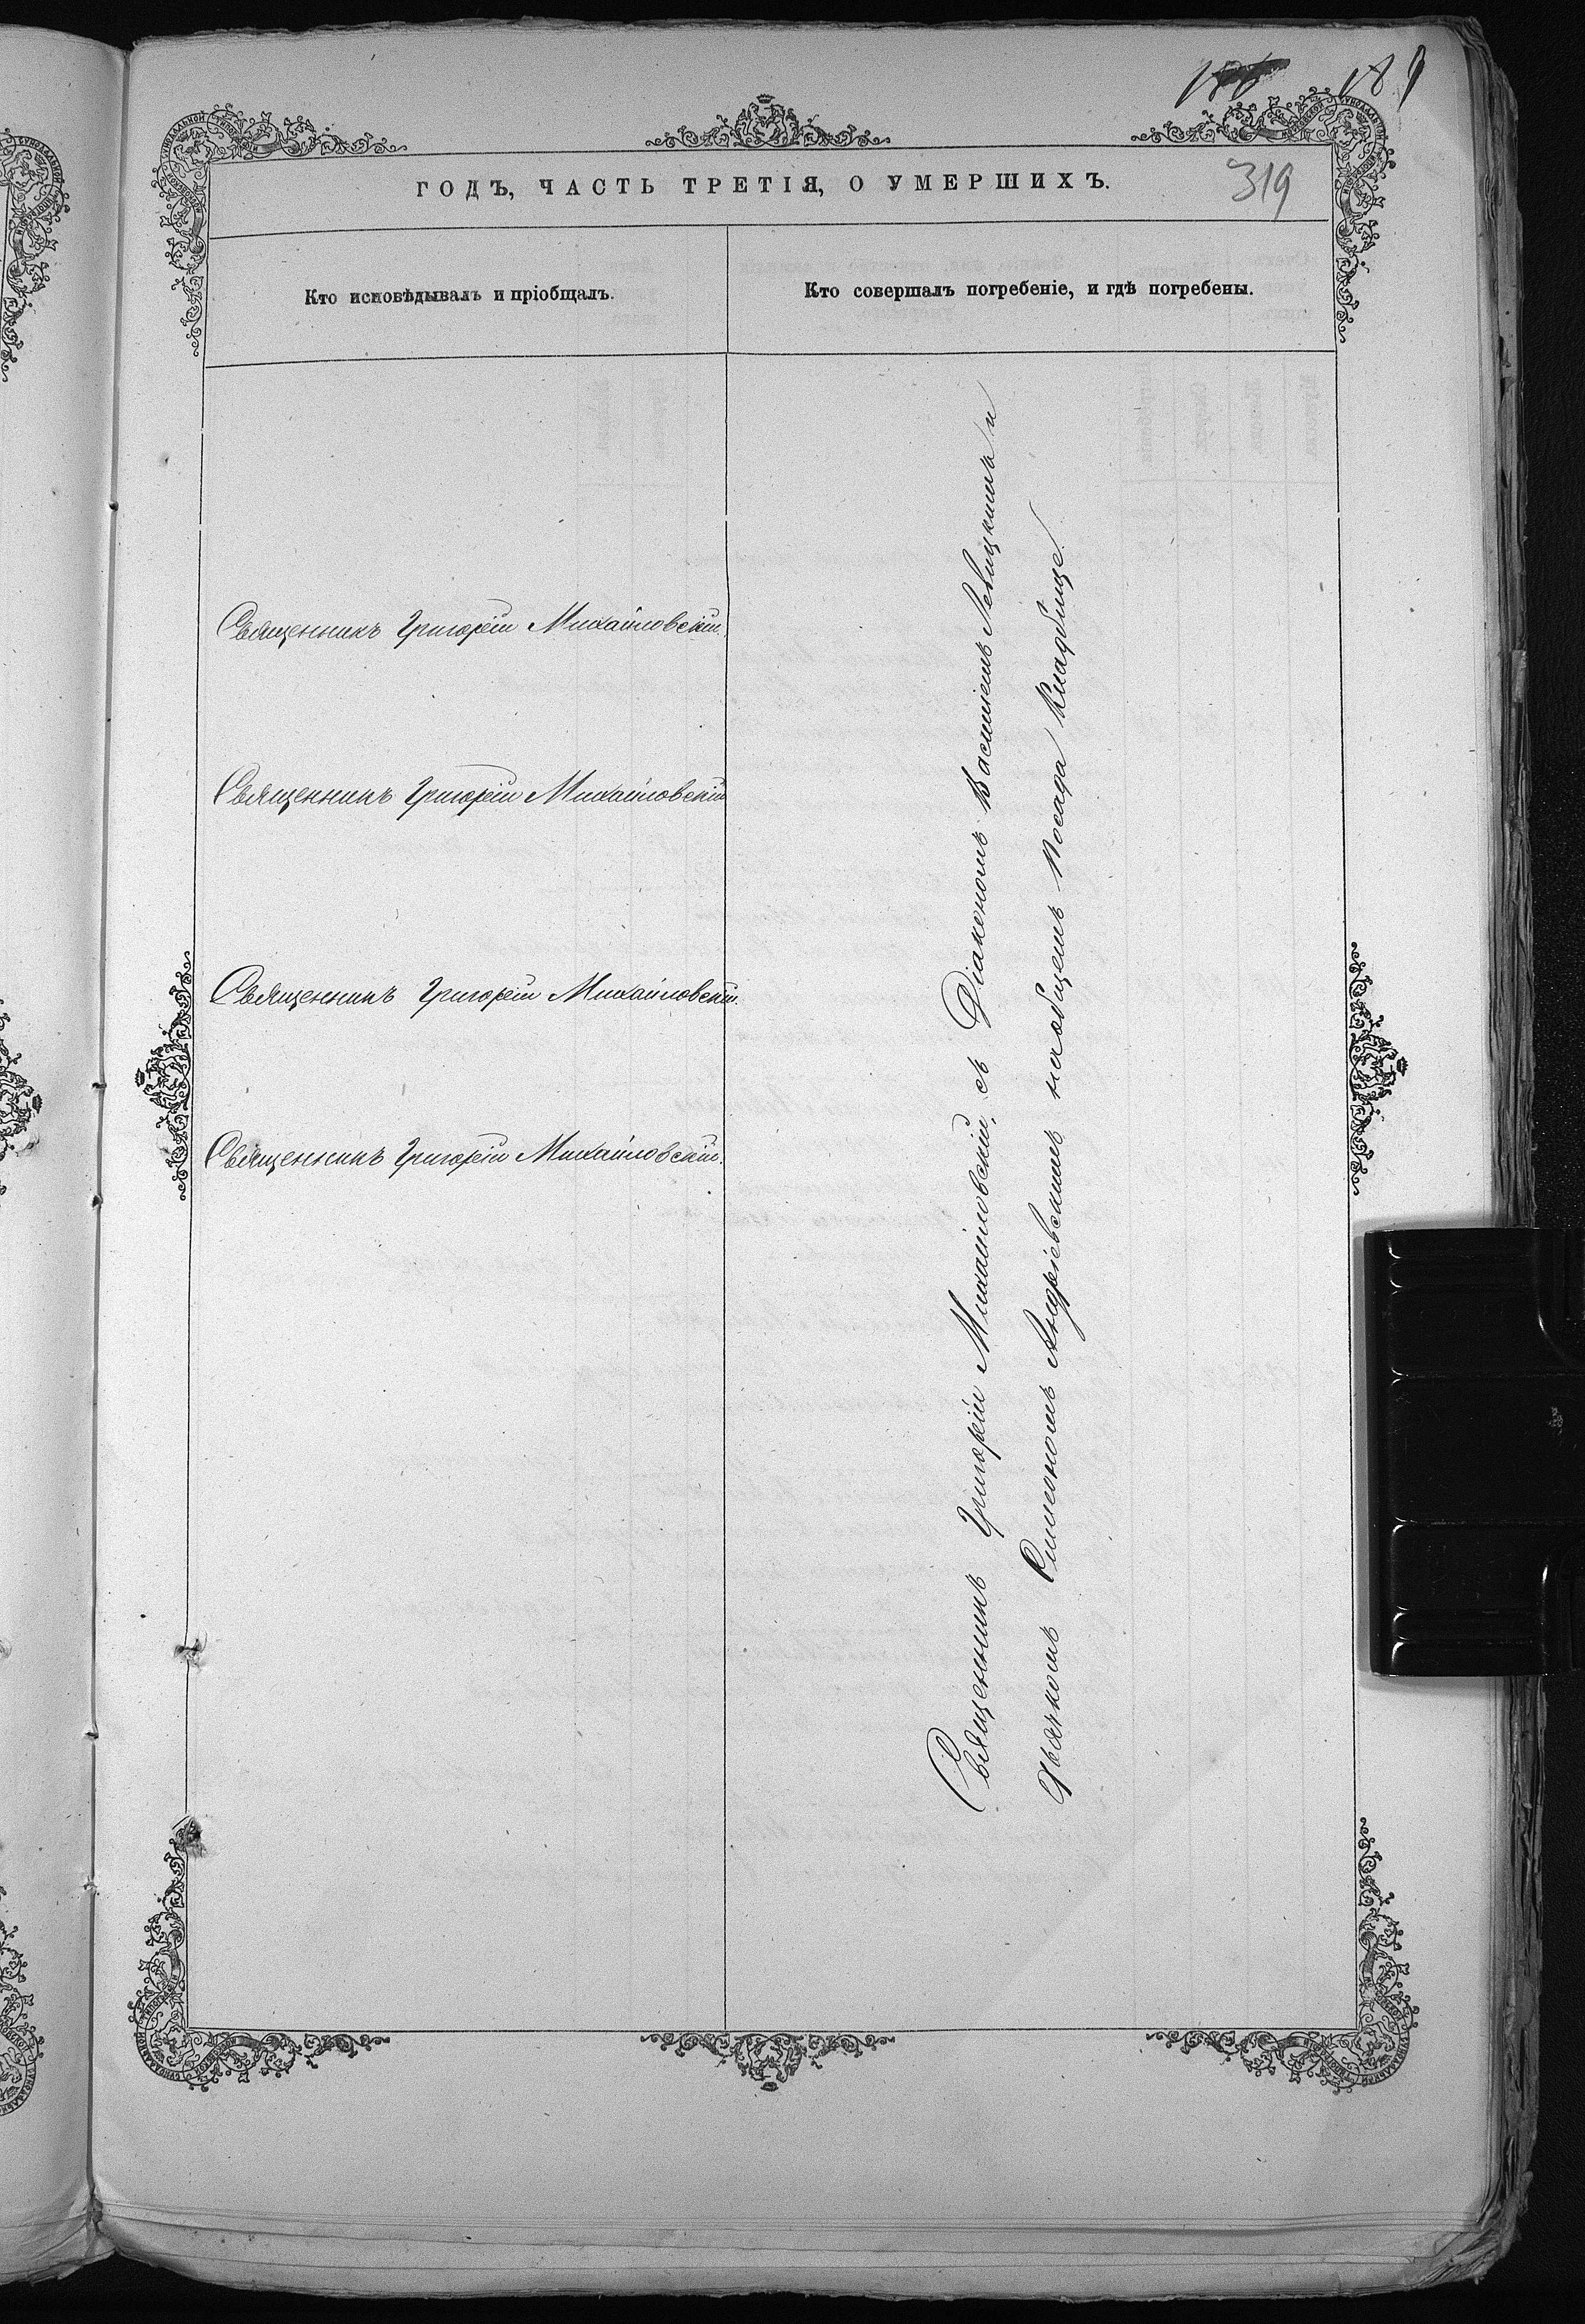 189
319
ГОДЪ, ЧАСТЬ ТРЕТІЯ, О УМЕРШИХЪ.
Кто исповѣдывалъ и пріобщалъ.
Кто совершалъ погребеніе, и гдѣ погребены.
Священникъ Григорій Михайловскій.
Священникъ Григорій Михайловскій
Священникъ Григорій Михайловскій.
Священникъ Григорій Михайловскій.
Священникъ Григорій Михайловскій, съ Діакономъ Василіемъ Левицкимъ и
Дьячкомъ Симеономъ Андріевскимъ на общемъ посада Кладбище.